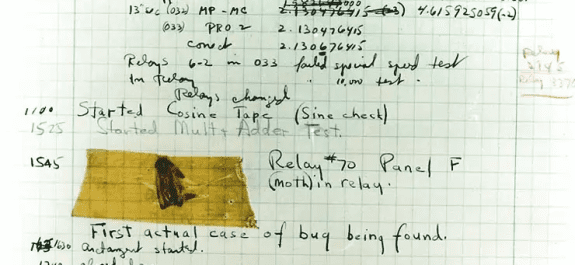 13" uc (033) MP - MC 4.615925059(-2)
(033) PRO 2 2.130476415
conect 2.130676415
Relays 6-2 in 033 failed special speed test
in relay " 10,000 test.
Relays changed
1100 Started Cosine Tape (Sine check)
1525 Started Mult + Adder Test.
1545 Relay #70 Panel F
(moth) in relay.
First actual case of bug being found.
1630 antangent started.